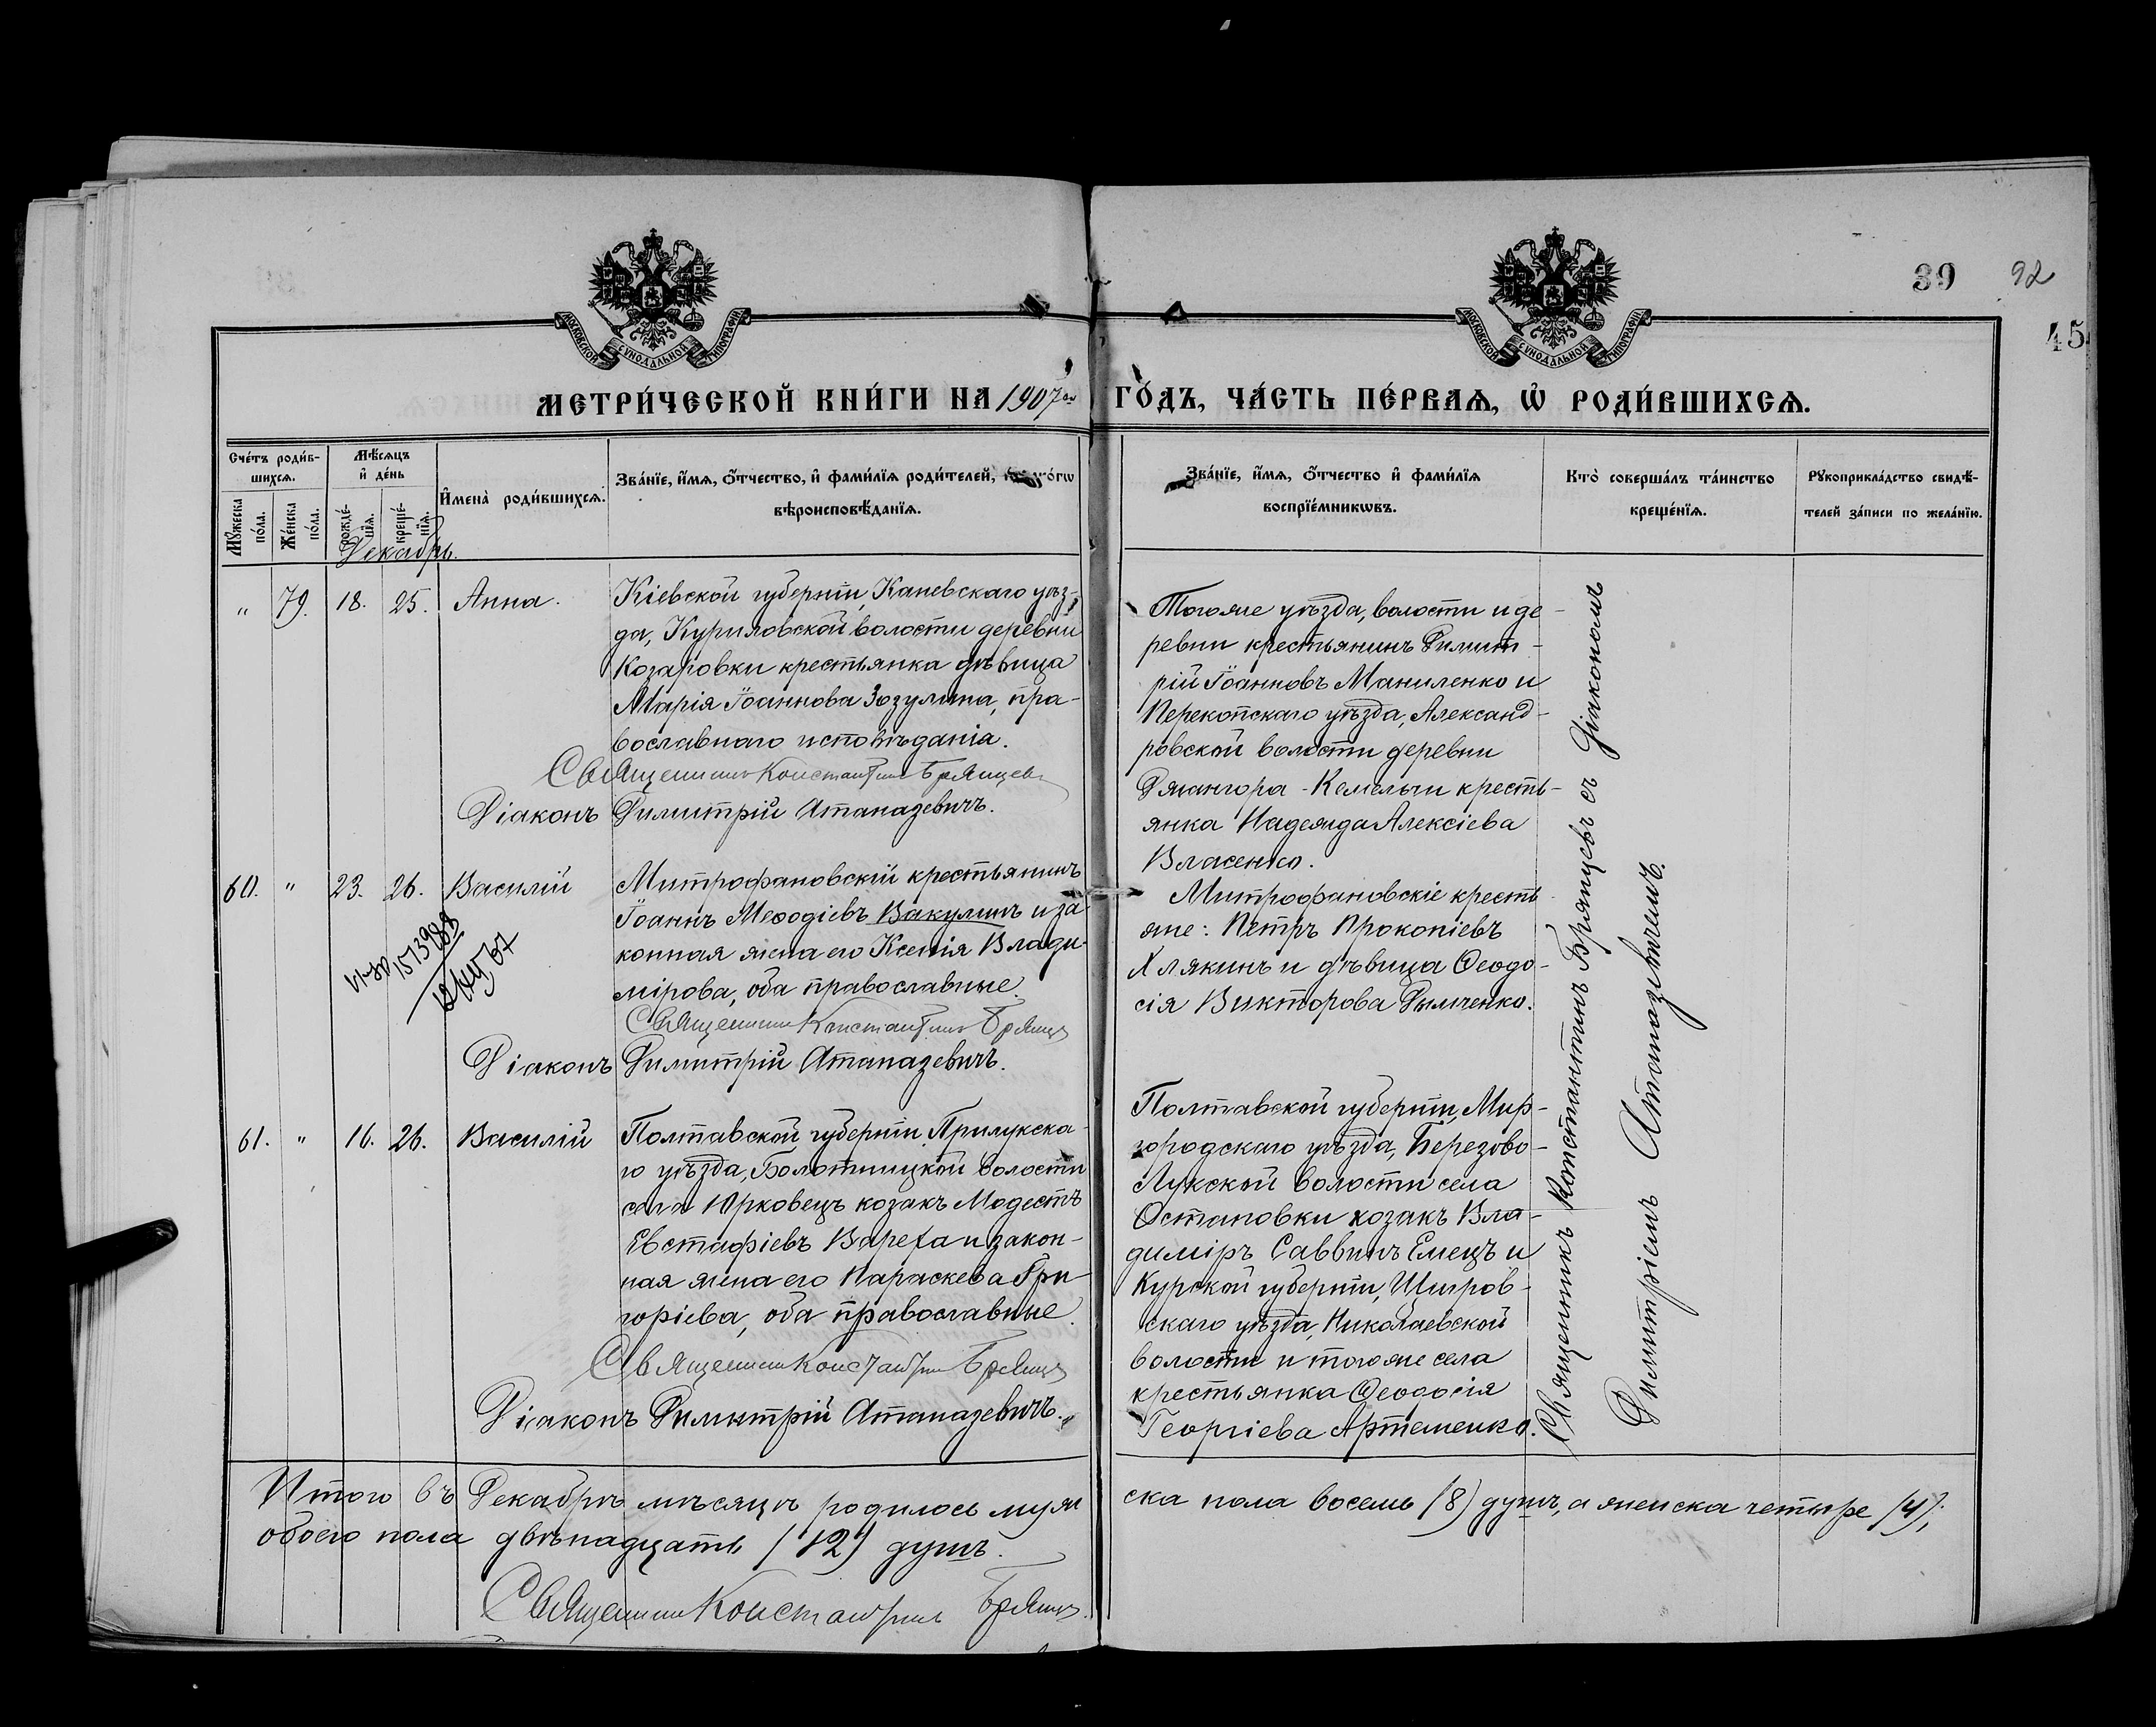 МОСКОВСКОЙ СѴНОДАЛЬНОЙ ТИПОГРАФІИ
МОСКОВСКОЙ СѴНОДАЛЬНОЙ ТИПОГРАФІИ
39
92
45
МЕТРИ́ЧЕСКОЙ КНИ́ГИ НА 1907ой ГО́ДЪ, ЧА́СТЬ ПЕ́РВАѦ, Ѡ҆ РОДИ́ВШИХСѦ.
Сче́тъ роди́в-
шихсѧ.
Мꙋ́жеска по́ла.
Же́нска по́ла.
Мѣ́сѧцъ
и҆ де́нь
рожде́-нїѧ.
креще́-нїѧ.
И҆мена̀ роди́вшихсѧ.
Зва́нїе, и҆́мѧ, ѻ҆́тчество, и҆ фами́лїѧ роди́телей,
вѣроисповѣ́данїѧ.
Зва́нїе, и҆́мѧ, ѻ҆́тчество и҆ фами́лїѧ
воспрїе́мникѡвъ.
Кто̀ соверша́лъ та́инство
креще́нїѧ.
Рꙋкоприкла́дство свидѣ́-
телей за́писи по жела́нїю.
Декабрь.
" 79. 18. 25. Анна.
Кіевской губерніи, Каневскаго уѣз-
да, Куриловской волости деревни
Козаровки крестьянка дѣвица
Марія Іоаннова Зозулина, пра-
вославнаго исповѣданія.
Священникъ Константинъ Брянцевъ
Діаконъ Димитрій Атаназевичъ.
Тогоже уѣзда, волости и де-
ревни крестьянинъ Димит-
рій Іоанновъ Маниленко и
Перекопскаго уѣзда, Александ-
ровской волости деревни
Джангора-Кемельчи кресть-
янка Надежда Алексіева
Власенко.
60. " 23. 26. Василій
Митрофановскій крестьянинъ
Іоаннъ Меѳодіевъ Вакулинъ и за-
конная жена его Ксенія Влади-
мірова, оба православные.
Священникъ Константинъ Брянцевъ
Діаконъ Димитрій Атаназевичъ.
Митрофановскіе кресть-
яне: Петръ Прокопіевъ
Хлякинъ и дѣвица Ѳеодо-
сія Викторова Дымченко.
61. " 16. 26. Василій
Полтавской губерніи, Прилукска-
го уѣзда, Болотницкой волости
села Юрковецъ козакъ Модестъ
Евстафіевъ Вареха и закон-
ная жена его Параскева Гри-
горіева, оба православные.
Священникъ Константинъ Брянцевъ
Діаконъ Димитрій Атаназевичъ.
Полтавской губерніи, Мир-
городскаго уѣзда, Березово-
Лукской волости села
Остаповки козакъ Вла-
диміръ Саввинъ Емецъ и
Курской губерніи, Щигров-
скаго уѣзда, Николаевской
волости и тогоже села
крестьянка Ѳеодосія
Георгіева Артеменко.
Священникъ Константинъ Брянцевъ съ діакономъ
Димитріемъ Атаназевичемъ.
Итого въ Декабрѣ мѣсяцѣ родилось муже ска пола восемь (8) душъ, а женска четыре (4);
обоего пола двѣнадцать (12) душъ.
Священникъ Константинъ Брянцевъ